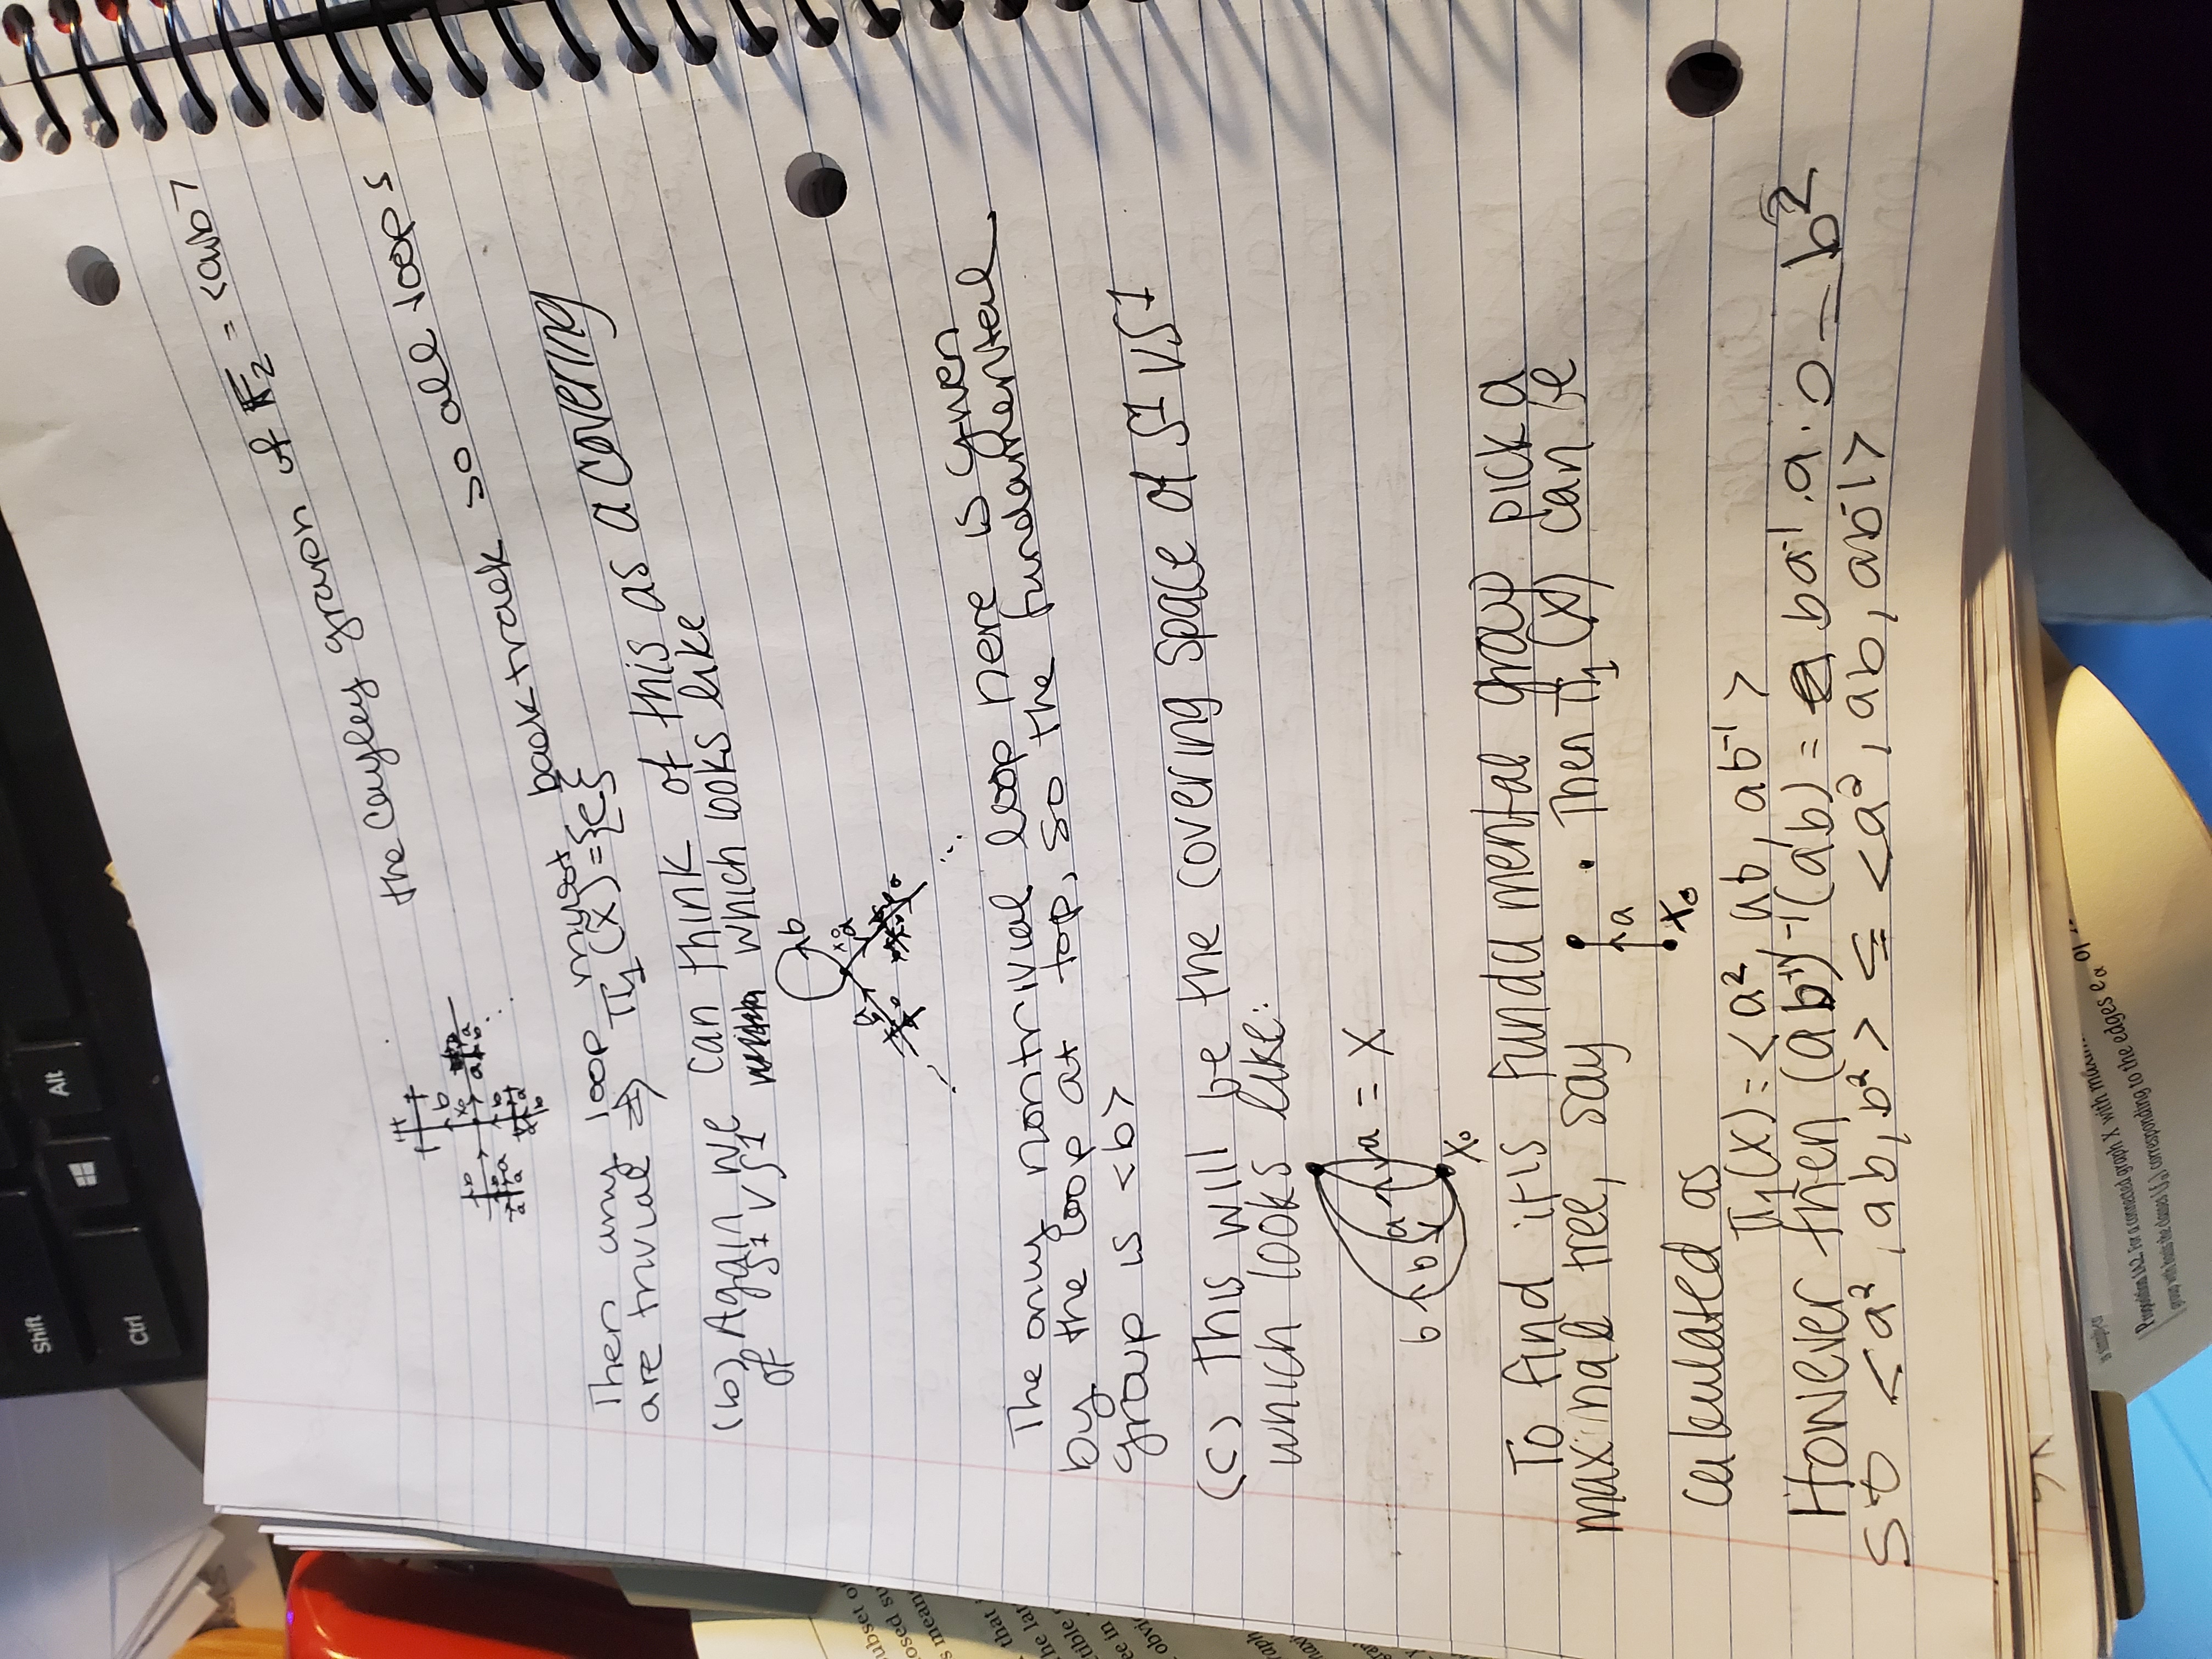 Shift
Ctrl
Alt
the Cayley graph of F₂ = <a,b>
b
b
x₀
a
b
a
b
b
a
a
a
b
a
b
Then any loop must backtrack so all loops
are trivial => π₁(x̃) = {e}
(b) Again we can think of this as a covering
of S¹ V S¹ which looks like
b
x₀
a
a
b
b
b
a
The only nontrivial loop here is given
by the loop at top, so the fundamental
group is <b>
(c) This will be the covering space of S¹ V S¹
which looks like:
b b a a = X
x₀
To find it's fundamental group pick a
maximal tree, say . Then π₁(X) can be
a
x₀
calculated as
π₁(X) = <a², ab, ab⁻¹>
However then (ab⁻¹)⁻¹(ab) = ba⁻¹·a·b = b²
so <a², ab, b²> ⊆ <a², ab, ab⁻¹>
ubset of
osed su
s means
that
he lat
ctible
ee in
obvi
raph
maxi
Proposition 1A.2. For a connected graph X with maxim
group with basis the classes [fα] corresponding to the edges eα of